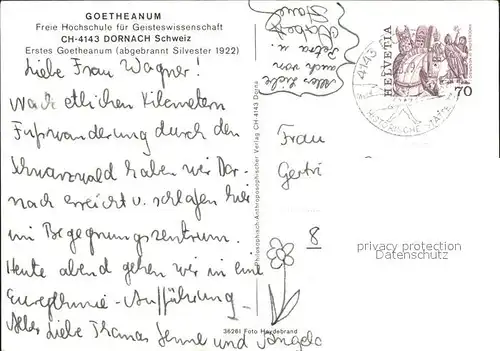 GOETHEANUM
Freie Hochschule für Geisteswissenschaft
CH-4143 DORNACH Schweiz
Erstes Goetheanum (abgebrannt Silvester 1922)
Liebe Frau Wagner!
Nach etlichen Kilometern
Fußwanderung durch den
Schwarzwald haben wir Dor-
nach erreicht u. schlafen hier
im Begegnungszentrum.
Heute abend gehen wir in eine
Eurythmie-Aufführung
Alles Liebe Thomas und Angela
Alles Liebe
auch von
Petra u.
Philosophisch-Anthroposophischer Verlag CH-4143 Dorna
36261 Foto Heydebrand
4143
HELVETIA
70
Frau
Gertr
8
privacy protection
Datenschutz